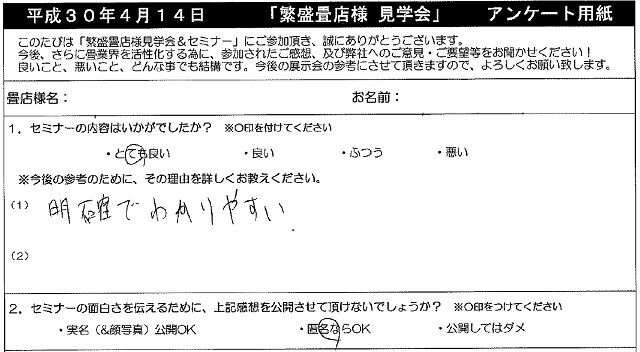 平成30年4月14日 「繁盛畳店様 見学会」 アンケート用紙
このたびは「繁盛畳店様見学会&セミナー」にご参加頂き、誠にありがとうございます。
今後、さらに畳業界を活性化する為に、参加されたご感想、及び弊社へのご意見・ご要望等をお聞かせください!
良いこと、悪いこと、どんな事でも結構です。今後の展示会の参考にさせて頂きますので、よろしくお願い致します。
畳店様名: お名前:
1.セミナーの内容はいかがでしたか? ※○印を付けてください
・とても良い ・良い ・ふつう ・悪い
※今後の参考のために、その理由を詳しくお教えください。
(1) 明確でわかりやすい.
(2)
2.セミナーの面白さを伝えるために、上記感想を公開させて頂けないでしょうか? ※○印をつけてください
・実名(&顔写真)公開OK ・匿名ならOK ・公開してはダメ